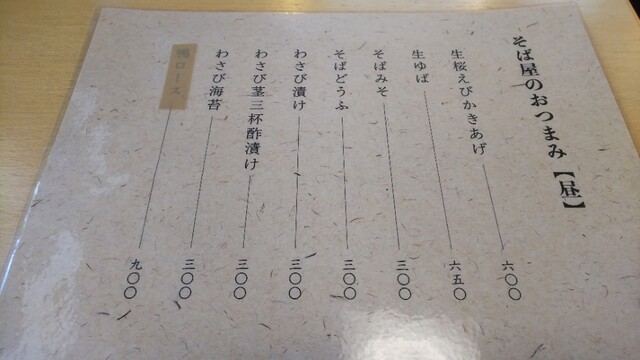 そば屋のおつまみ【昼】
生桜えびかきあげ 六〇〇
生ゆば 六五〇
そばみそ 三〇〇
そばどうふ 三〇〇
わさび漬け 三〇〇
わさび茎三杯酢漬け 三〇〇
わさび海苔 三〇〇
鴨ロース 九〇〇